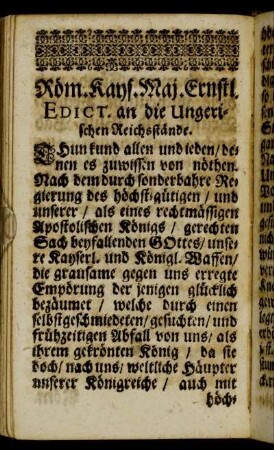 Röm. Kayſ. Maj. Ernſtl.
EDICT. an die Ungeri-
ſchen Reichsſtände.
THun kund allen und ieden / de-
nen es zuwiſſen von nöthen.
Nach dem durch ſonderbahre Re-
gierung des höchſt-gütigen / und
unſerer / als eines rechtmäſſigen
Apoſtoliſchen Königs / gerechten
Sach beyfallenden GOttes / unſe-
re Kayſerl. und Königl. Waffen /
die grauſame gegen uns erregte
Empörung der jenigen glücklich
bezäumet / welche durch einen
ſelbſtgeſchmiedeten / geſuchten / und
frühzeitigen Abfall von uns / als
ihrem gekrönten König / da ſie
doch / nach uns / weltliche Häupter
unſerer Königreiche / auch mit
höch-